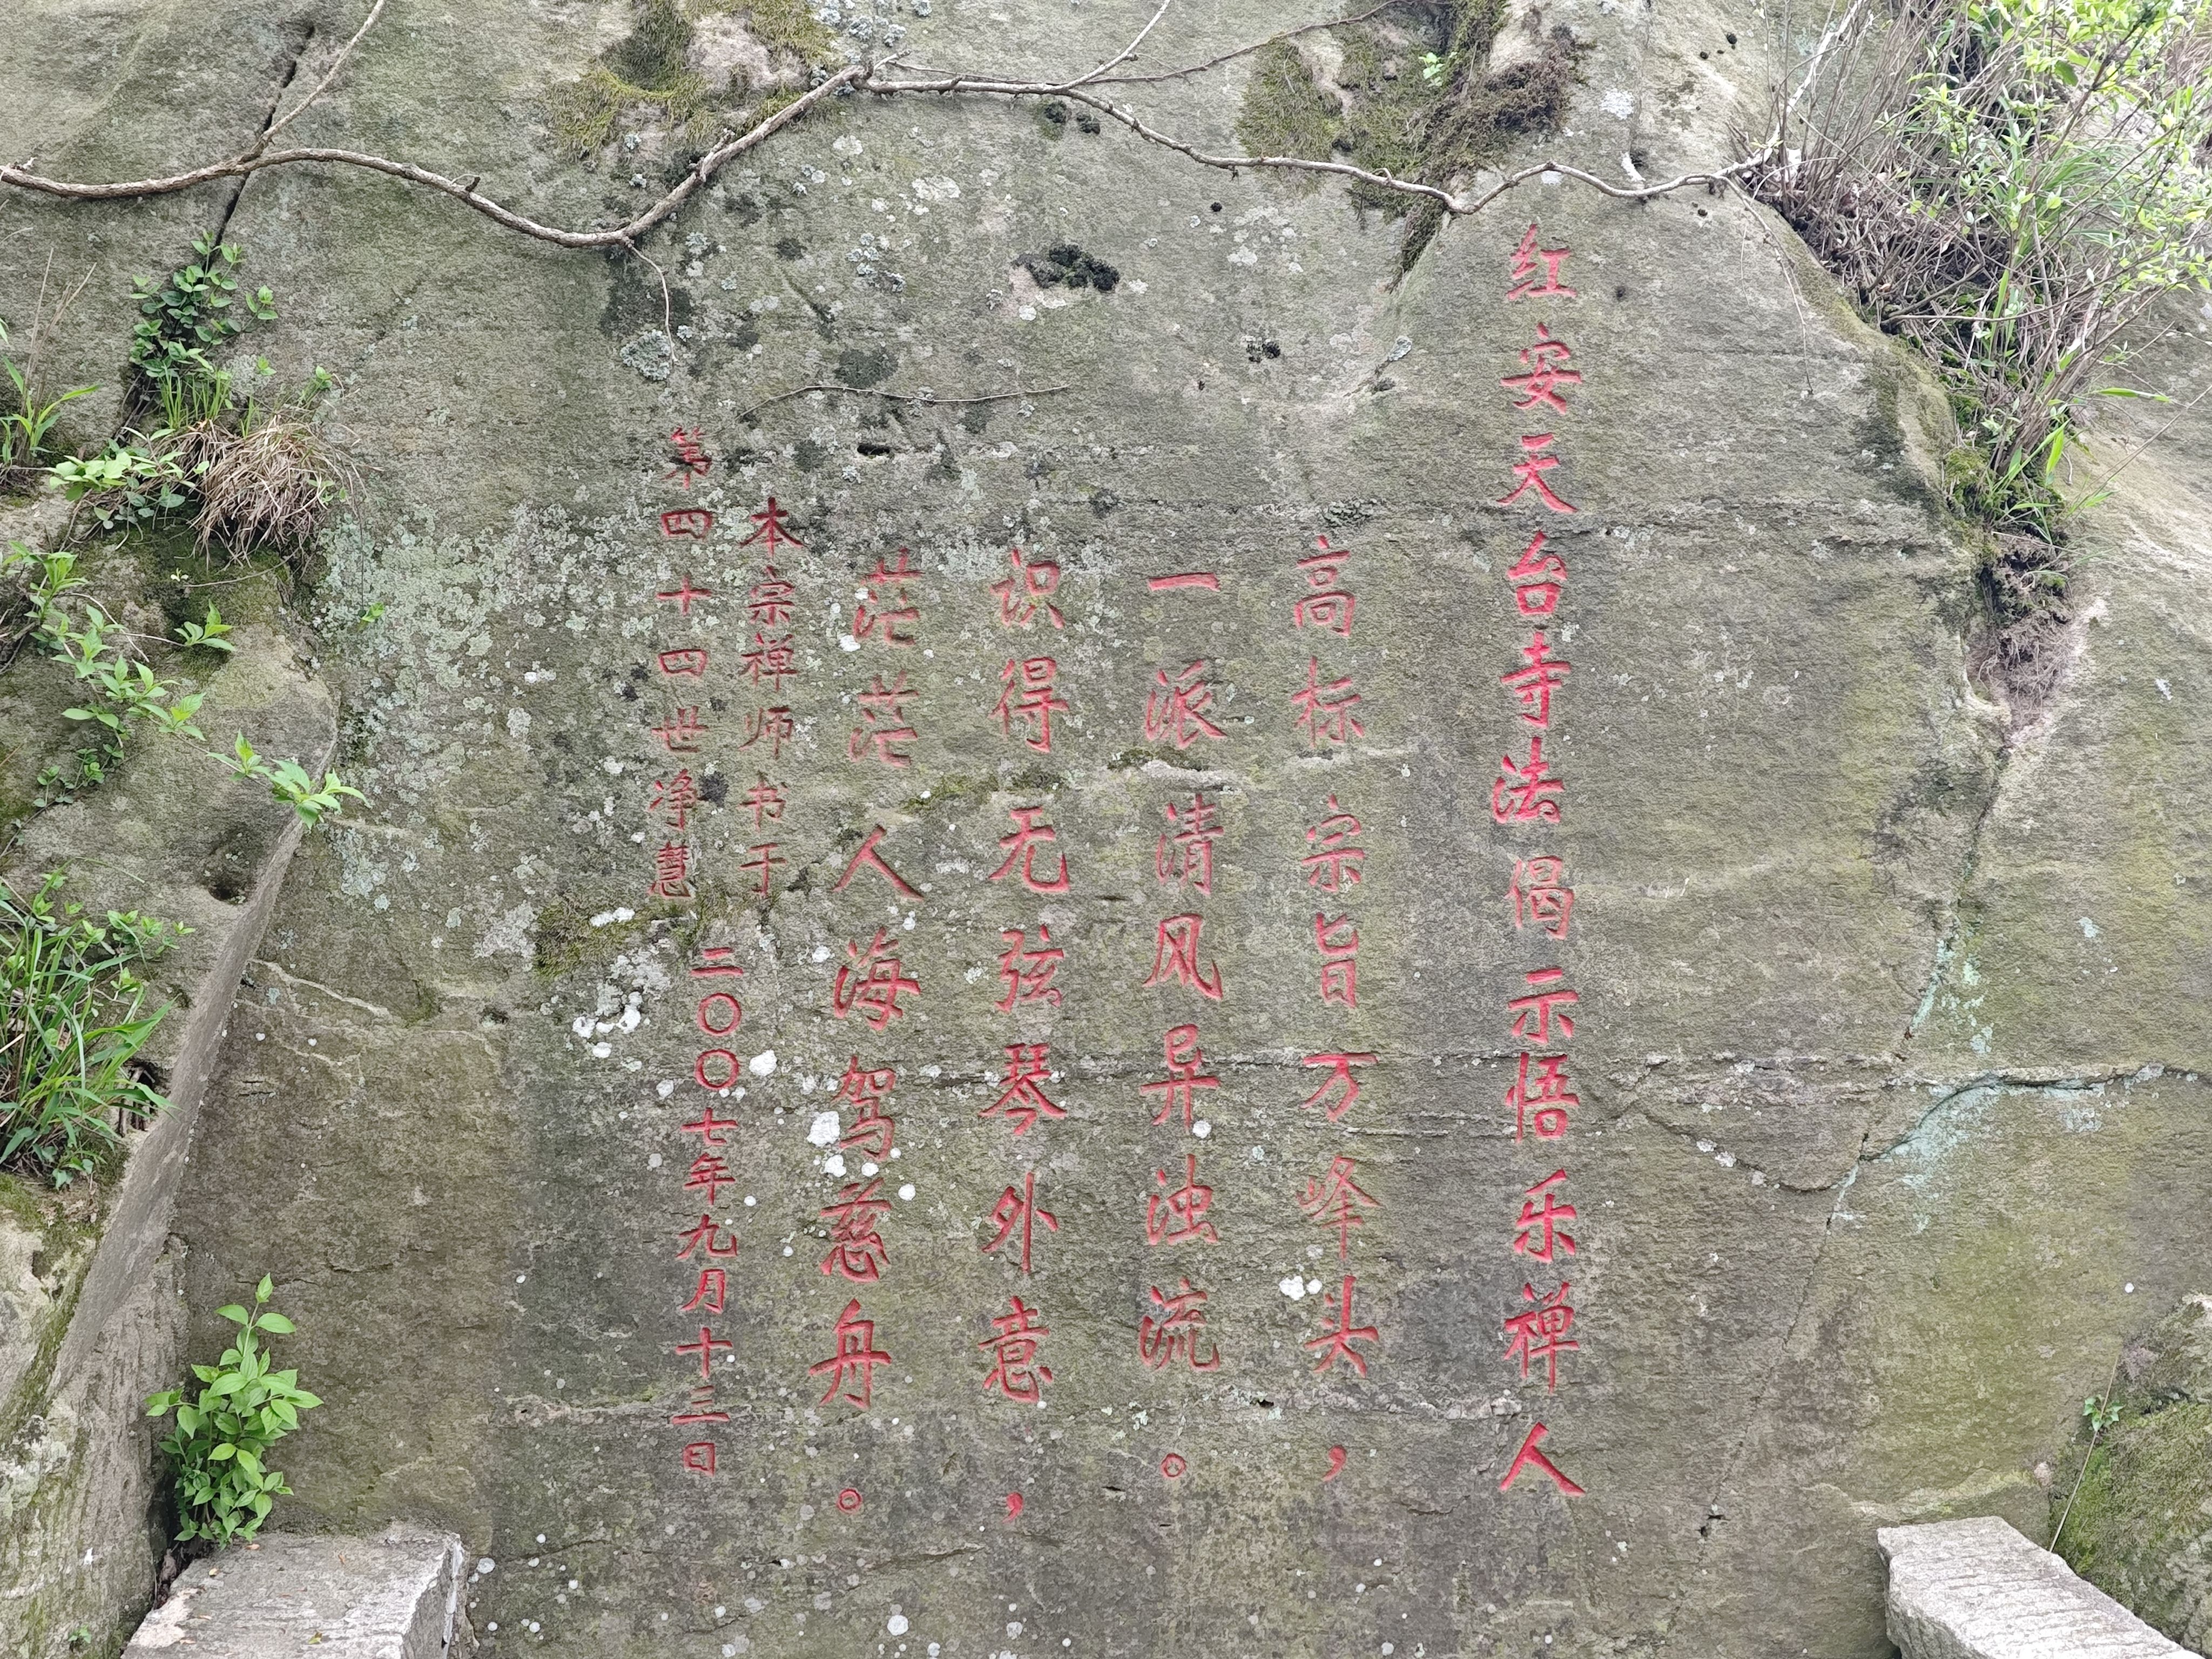 红安天台寺法偈示悟乐禅人
高标宗旨万峰头，
一派清风异浊流。
识得无弦琴外意，
茫茫人海驾慈舟。
本宗禅师书于
第四十四世净慧
二〇〇七年九月十三日